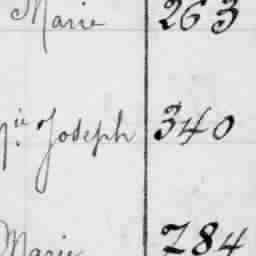 Marie 263
Joseph 340
Marie 784